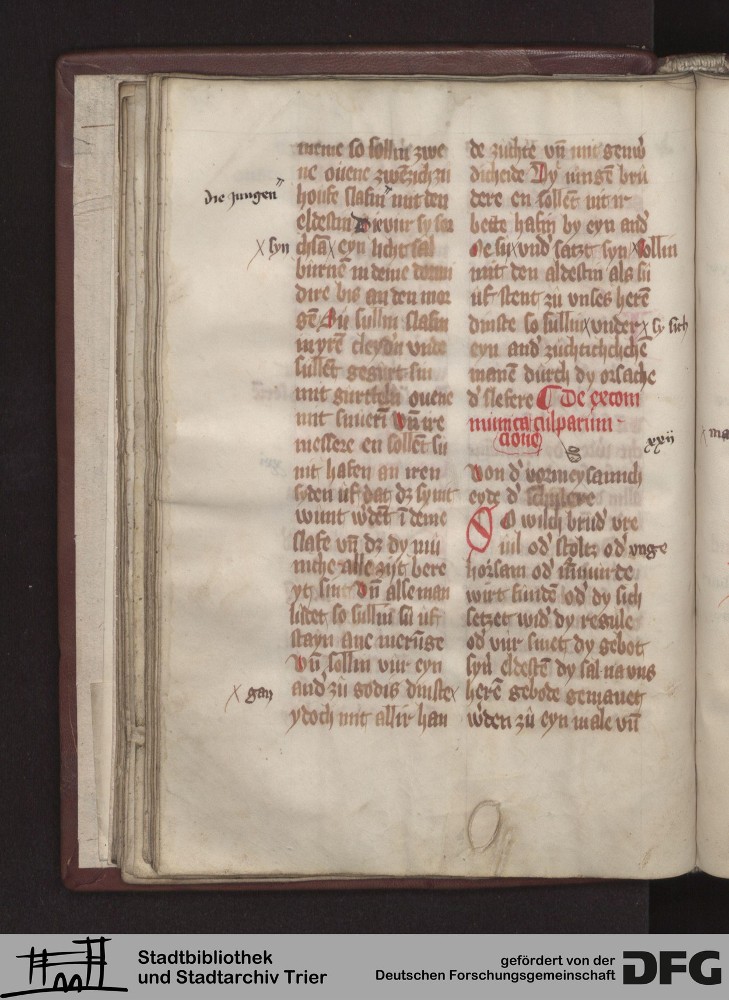 meme so sollin zwe
ne ouene zwēzich zu
die jungen
houfe slafin mit den
eldestin
syn
eyn licht sal
burnē in deme
dire bis an den mor
gē Sii sullin slafin
in yrē cleydin unde
sullēt gegurt sin
mit gurteln ouene
mit snuerē Vn̄ ire
messere en sollēt sii
nit hafen an iren
syden uf dat dz sy nit
wunt wdēt ī deme
slafe vn̄ dz dy mu
niche alle zijt bere
yt sint Vn̄ alse man
ludet so sullin sii uf
stayn ane merūge
Vn̄ sollin vur eyn
gan
and zu godis dinste
ydoch mit allir han
de zuchte vn̄ mit
dicheide Dy iungē bru
dere en sollēt nit ir
bette hafin by eyn and
vnd satzt syn sollin
mit den aldestin als sii
uf stent zu vnses herē
dinste so sullin vnder
sy sich
eyn and zuchtichlichē
manē durch dy orsache
d slefere De excom
munica culparum
cione
xxij
Von d vormeysamich
eyde d schultere
So wilch brud vre
uil od stoltz od vnge
horsam od murmurde
wirt fundē od dy sich
setzet wid dy regule
od vur smet dy gebot
syn eldestē dy sal na vns
herē gebode gemanet
wden zu eyn male vn̄
Stadtbibliothek
und Stadtarchiv Trier
gefördert von der
Deutschen Forschungsgemeinschaft
DFG